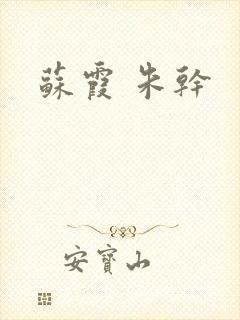 蘇霞 朱幹
安寶山